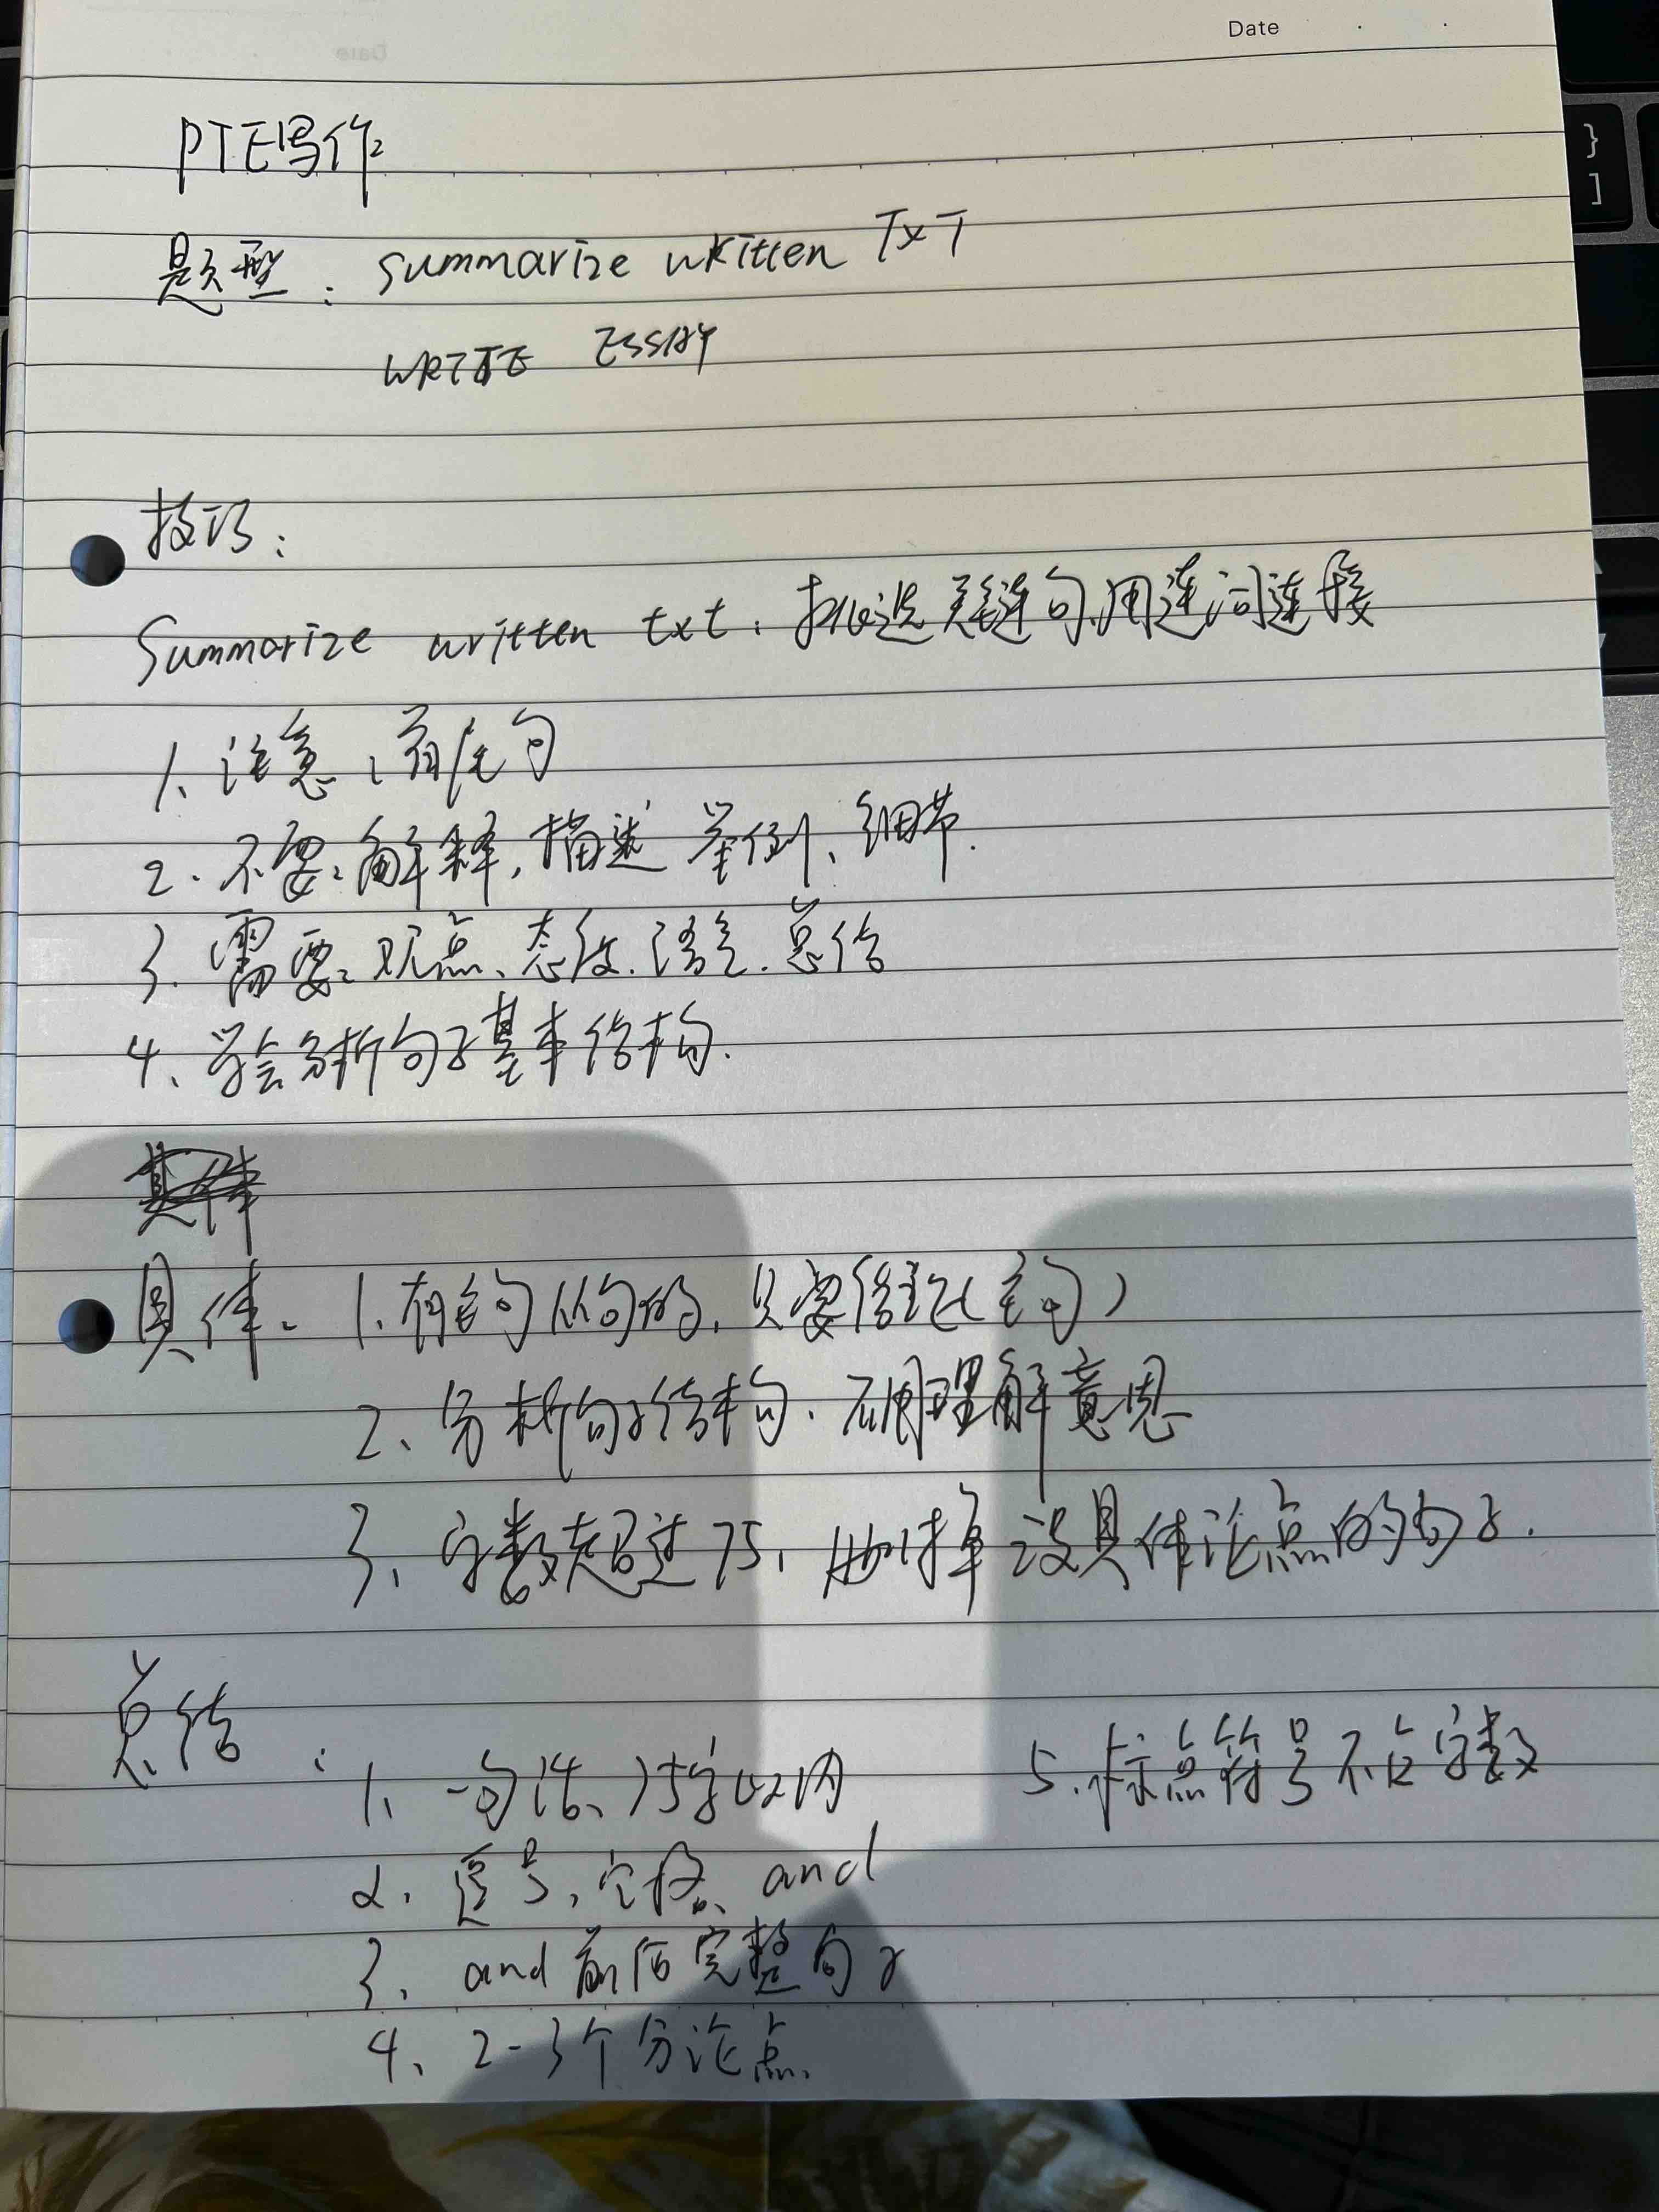 Date
PTE写作
题型: summarize written TXT
WRITE ESSAY
技巧:
Summarize written txt. 挑选关键句,用连词连接
1、注意、首尾句
2. 不要:解释,描述 举例、细节.
3. 需要:观点、态度.语气.总结
4、学会分析句子基本结构.
具体
具体、1.有主句从句的,只要结论(主句)
2、分析句子结构.不用理解意思
3、字数超过75,抛掉没具体论点的句子.
总结:
1、一句话、75字以内
5.标点符号不占字数
2. 逗号,空格、and
3、and前后完整句子
4、2-3个分论点.
}
]